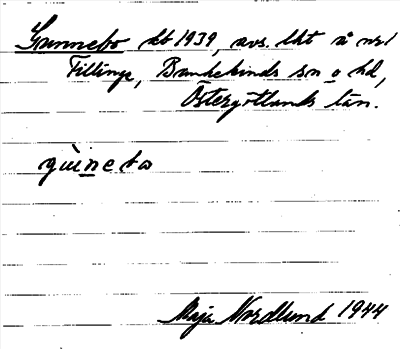 Gunnebo kb 1939, avs. lht å nr 1
Fillinge, Bankekinds sn o hd,
Östergötlands län.
gùnebo
Maja Nordlund 1944